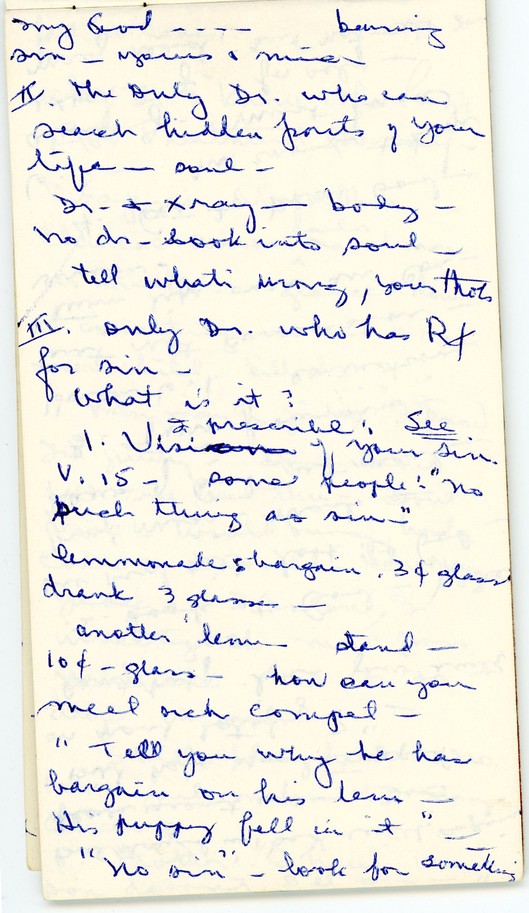 my God - - - - bearing
sin - yours & mine
II. The only Dr. who can
search hidden parts of your
life — soul -
Dr. - Xray — body -
No dr - look into soul -
tell what's wrong, your thots
III. only Dr. who has Rx
for sin -
What is it?
I prescribe: See
1. Vision of your sin.
V. 15 - some people: "no
such thing as sin"
lemmonade bargain. 3¢ glass
drank 3 glasses —
another lem stand —
10¢ - glass - how can you
meet such compet -
" Tell you why he has
bargain on his lem -
His puppy fell in it " -
"No sin" - look for something